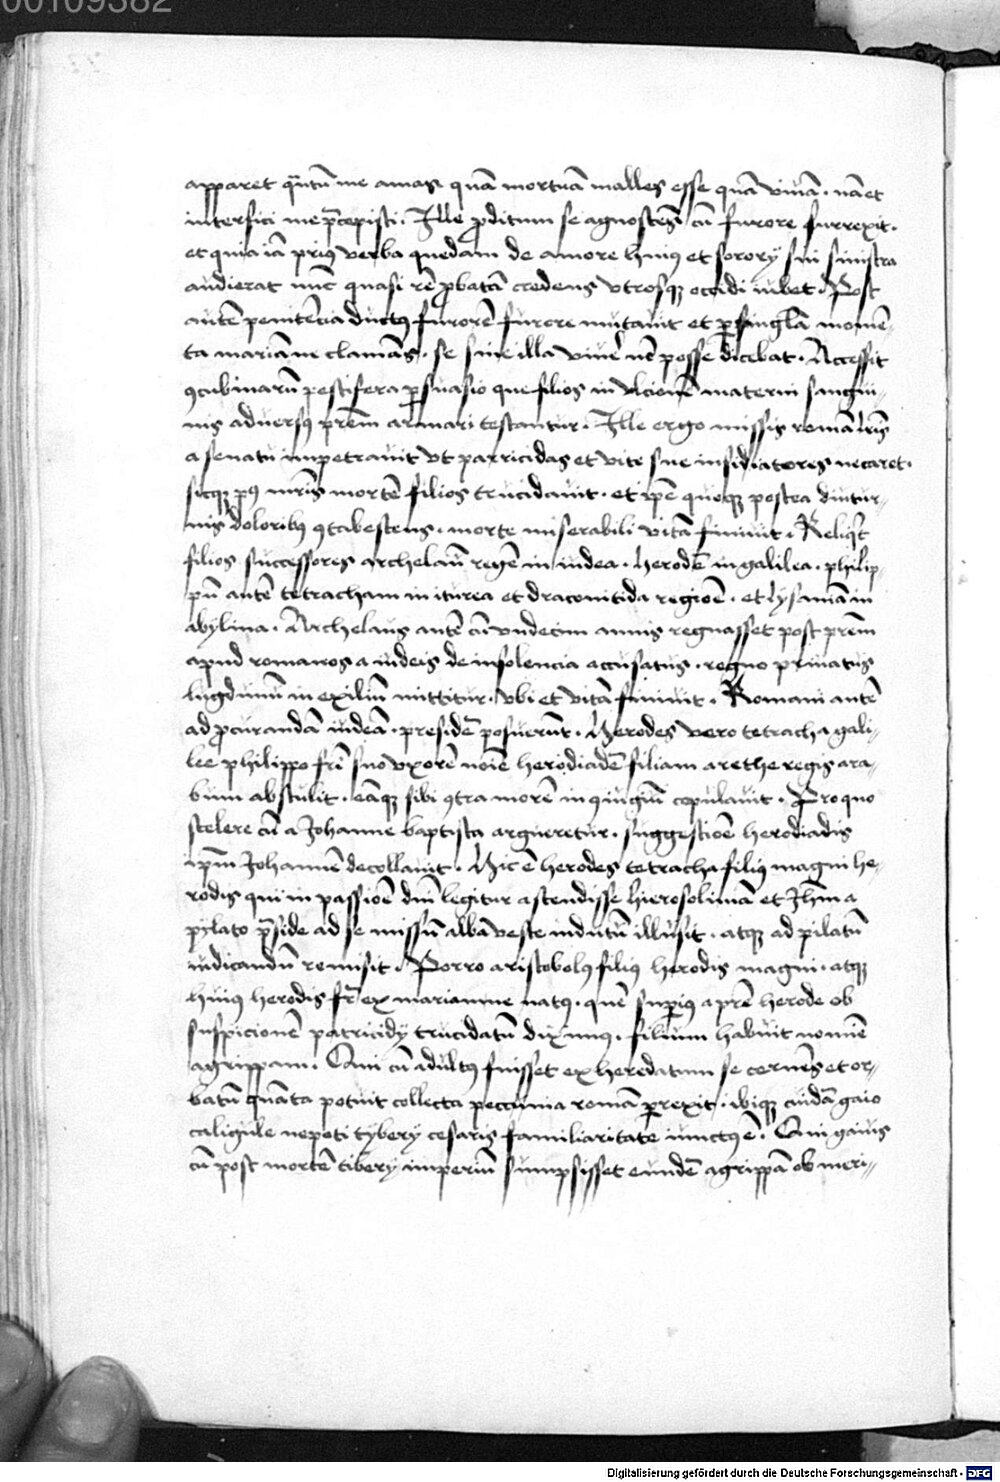 00109382
apparet qᷓntū me amas quā mortuā malles esse quā viuā . nā et
interfici me p̄cepisti . Ille ꝓditum se agnoscēs cū furore surrexit .
et quia iā priꝰ verba quedam de amore huiꝰ et sororꝭ sui sinistra
audierat nūc quasi rē ꝓbatā credens vtrosqꝫ occidi iubet . Post
autē penitēcia ductꝰ furorē furore mutauit et ꝑ singl̄a momē⸗
ta mariāne clamās . se sine illa viuē nō posse dicebat . Accessit
ꝯcubinarū pestifera ꝑsuasio que filios in vlcionē materni sangui⸗
nis aduersꝰ prēm armari testantur . Ille ergo missis romā lrīs
a senatu impetrauit vt parricidas et vite sue insidiatores necaret .
sicqꝫ pꝰ mrīs mortē filios trucidauit . et ipē quoqꝫ postea diutur⸗
nis doloribꝰ ꝯtabescens . morte miserabili vitā finiuit . Reliqͥt
filios successores archelaū regē in iudea . herodē in galilea . philip⸗
pū autē tetracham in iturea et draconitida regiōē . et lysaniā in
abylina . Archelaus autē cū vndecim annis regnasset post prēm
apud romanos a iudeis de insolencia accusatus . regno priuatus
lugdunū in exiliū mittitur . vbi et vitā finiuit . Romani autē
ad ꝓcurandā iudeā . presidē posuerūt . Herodes vero tetracha gali⸗
lee philippo frī suo vxorē noīe herodiadē filiam arethe regis ara⸗
bum abstulit . eāqꝫ sibi ꝯtra morē in ꝯiugiū copulauit . Pro quo
scelere cū a Johanne baptista argueretur . suggestiōē herodiadis
ipm̄ Johannē decollauit . Hic ē herodes tetracha filiꝰ magni he⸗
rodis qui in passiōē dnī legitur ascendisse hierosolimā et Jhm̄ a
pylato p̄side ad se missū alba veste indutū illusit . atqꝫ ad pilatū
iudicandū remisit . Porro aristobolꝰ filiꝰ herodis magni . atqꝫ
huiꝰ herodis fr̄ ex mariamne natꝰ . quē supiꝰ a prē herode ob
suspicionē patricidij trucidatū diximꝰ . filium habuit nomīe
agrippam . Qui cū adultꝰ fuisset exheredatum se cernēs et or⸗
batū quāta potuit collecta peccunia romā ꝑrexit . ibiqꝫ cuidā gaio
caligule nepoti tyberij cesaris familiaritate iunctꝰ ē . Qui gaius
cū post mortē tiberij imperiū sumpsisset eundē agrippā ob meri⸗
Digitalisierung gefördert durch die Deutsche Forschungsgemeinschaft - DFG